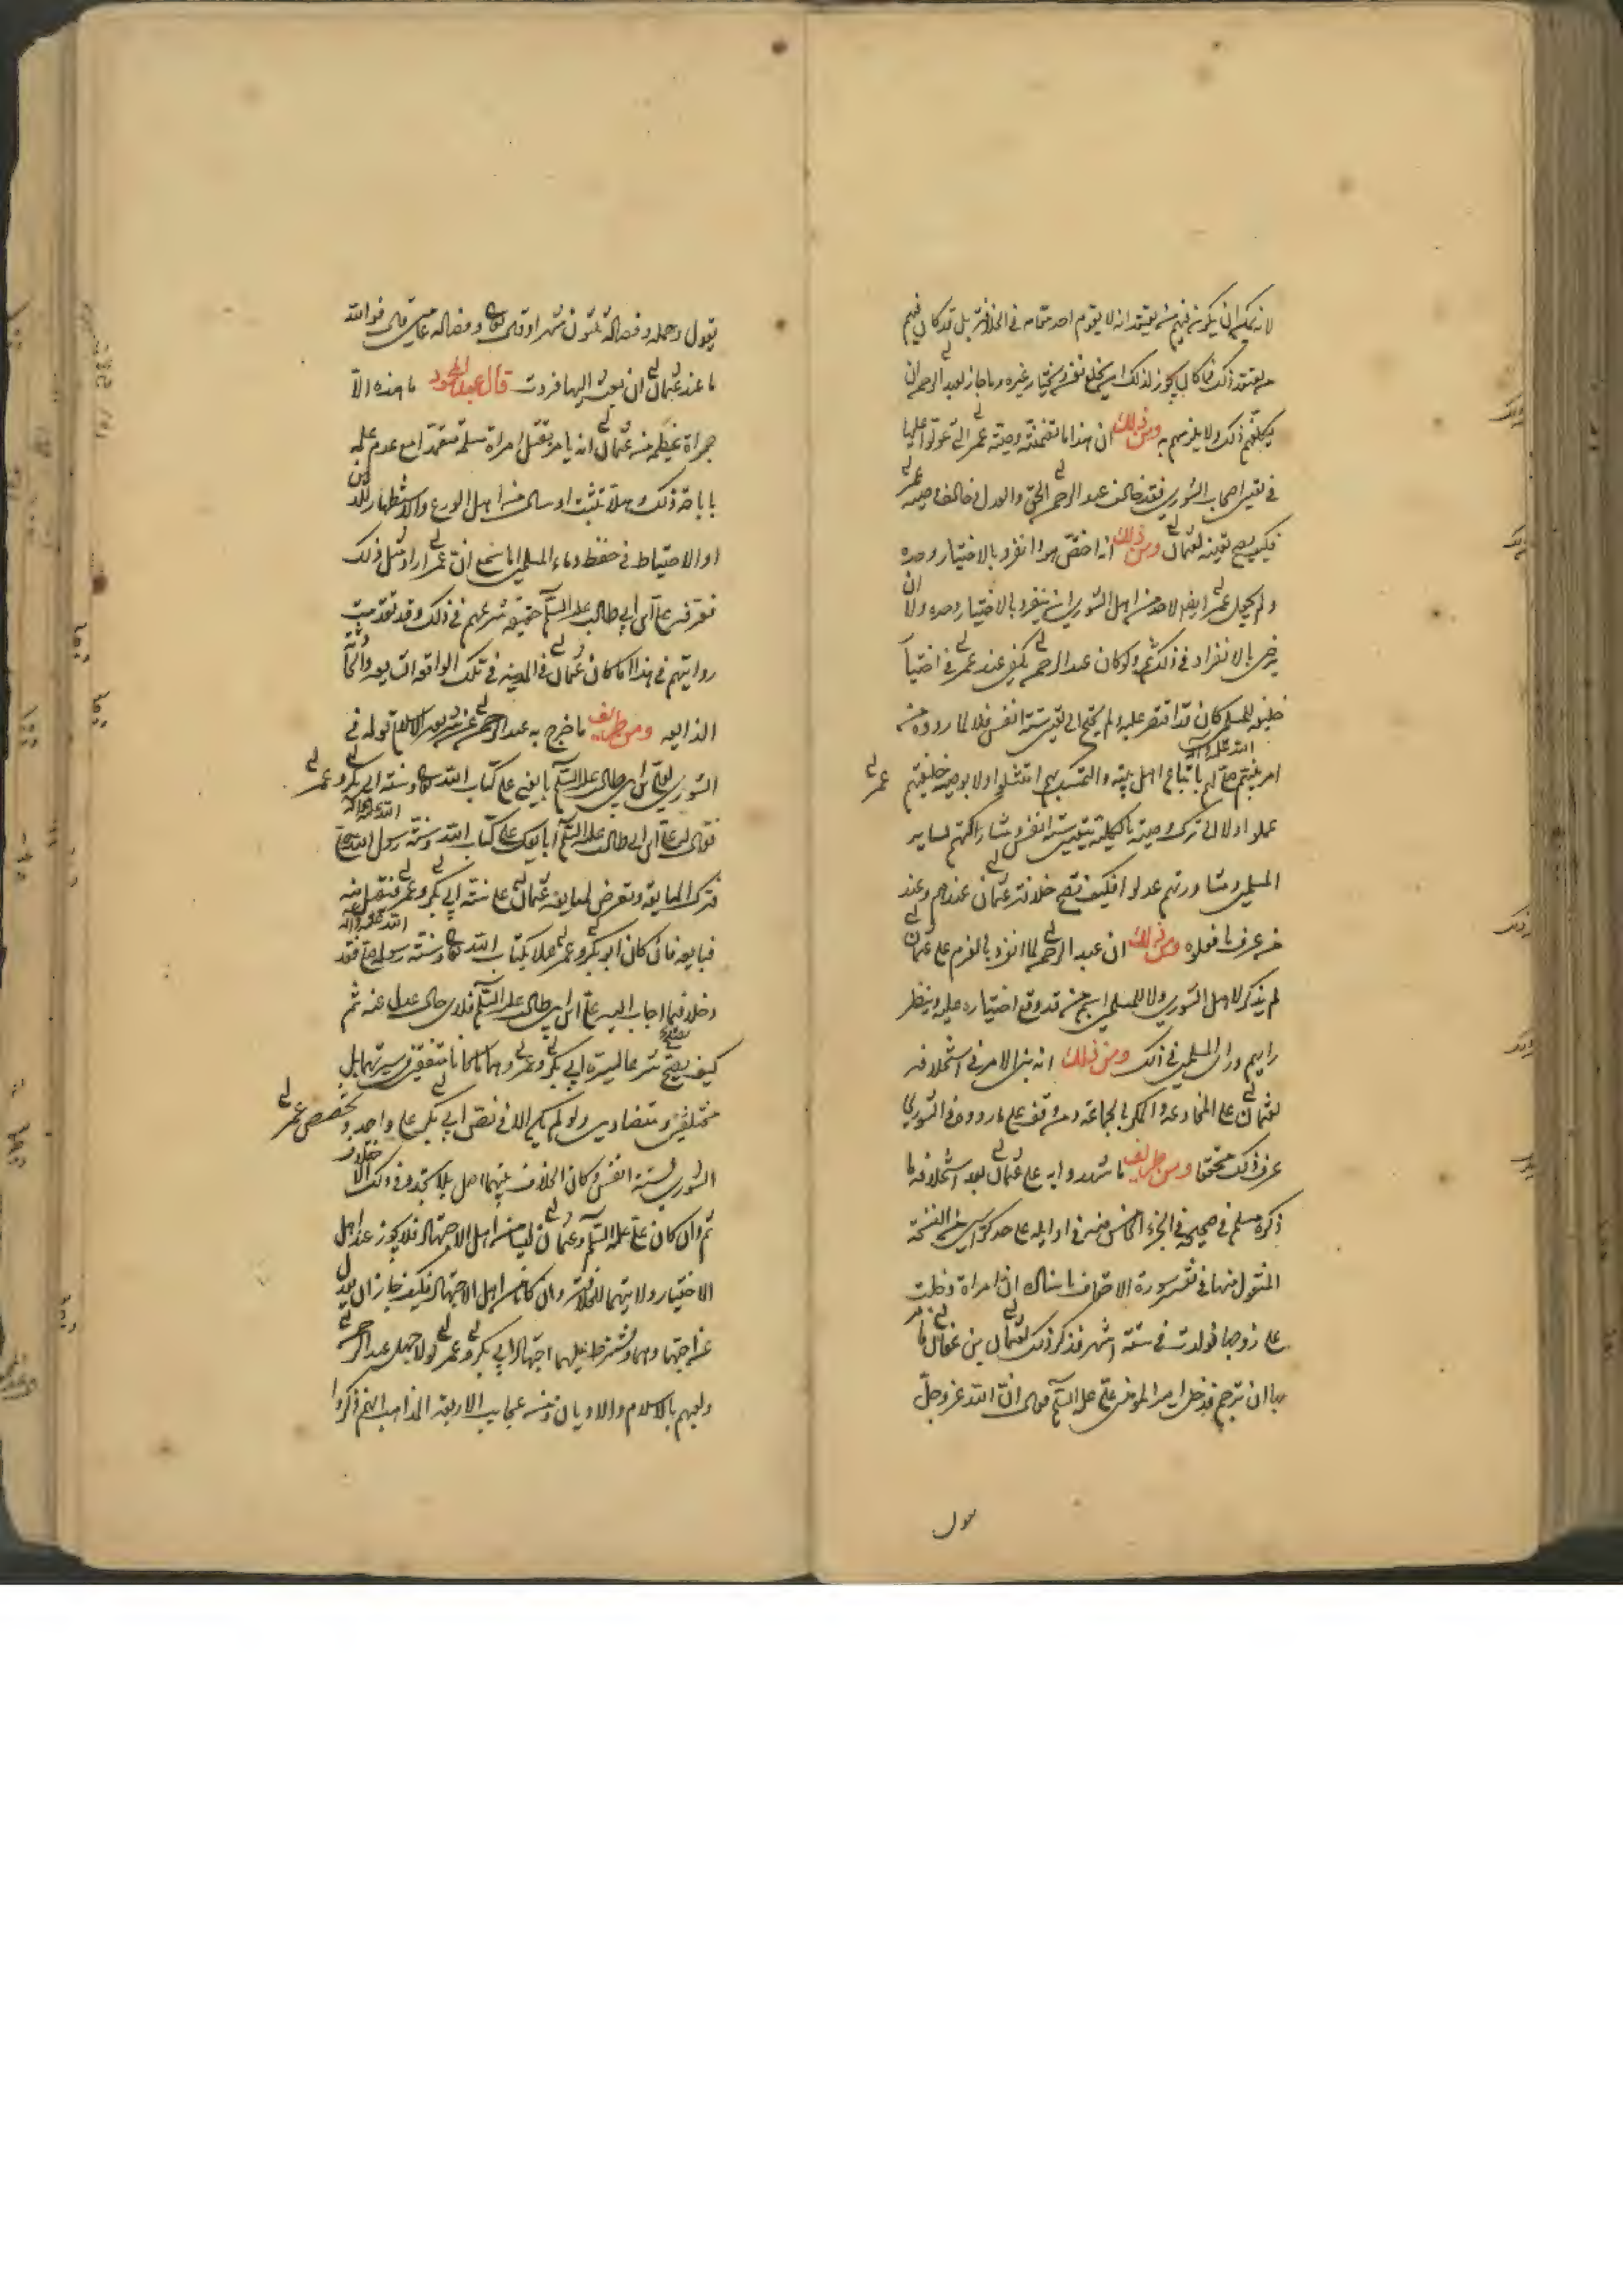 لانه يمكن ان يكون فيهم من يعتقد انه لا يقوم احد مقامه في الخلافة بل قد كان فيهم
من يعتقد ذلك فما كان يجوز لذلك ان يخلع نفسه ويختار غيره وما جاز لعبد الرحمن ان
يكلفهم ذلك ولا يلزمهم به ومن ذلك ان هذا ما تضمنته وصية عمر التي عولوا عليها
في تعيين اصحاب الشوري فقد خالف عبد الرحمن الحق والعدل وخالف وصية عمر
فكيف يصح تعيينه لعثمان ومن ذلك انه اختص هو وانفرد بالاختيار وحده
ولم يجعل عمر ايضا لاحد من اهل الشوري ان ينفرد بالاختيار وحده ولا ان
يرضى بالانفراد في ذلك ولو كان عبد الرحمن يكفي عند عمر في اختيار
خليفة للمسلمين كان قد اقتصر عليه ولم يحتج الى تعيين ستة انفس فلا لما رووه من
امر نبيهم صلى الله عليه وآله لهم باتباع اهل بيته والتمسك بهم امتثلوا ولا بوصية خليفتهم عمر
عملوا ولا الى ترك وصيته بالكلية بتعيين ستة انفس ومشاركتهم لساير
المسلمين ومشاورتهم عدلوا فكيف تصح خلافة عثمان عندهم وعند
من عرف ما فعلوه ومن ذلك ان عبد الرحمن لما انفرد بالعزم على عثمان
لم يذكر لاهل الشوري ولا للمسلمين اسم من قد وقع اختياره عليه وينظر
رايهم وراى المسلمين في ذلك ومن ذلك انه بنى الامر في استخلافه
لعثمان على المخادعة والمكر بالجماعة ومن وقف على ما رووه في الشوري
عرف ذلك محققا ومن طرايف ما شهدوا به على عثمان بعد استخلافه ما
ذكره مسلم في صحيحه في الجزء الخامس منه في اوايله على حد كراسين من النسخة
المنقول منها في تفسير سورة الاحقاف باسناده ان امراة دخلت
على زوجها فولدت في ستة اشهر فذكر ذلك لعثمان بن عفان فامر
بها ان ترجم فدخل امير المؤمنين علي عليه السلام فقال ان الله عز وجل
يقول وحمله وفصاله ثلثون شهرا وقال تعالى وفصاله في عامين قال فوالله
ما عند عثمان ان بعث اليها فردت قال عبد المحمود ما هذه الا
جراة عظيمة من عثمان انه يامر بقتل امراة مسلمة متعمدا مع عدم علمه
باباحة ذلك وهلا تثبت او سال من اهل الورع والاستظهار للدين
او الاحتياط في حفظ دماء المسلمين اما سمع ان عمر اراد مثل ذلك
فعرفه علي بن ابي طالب عليه السلام حقيقة شرعهم في ذلك وقد تقدمت
روايتهم في هذا اما كان عثمان في المدينة في تلك الواقعة الشايعة والحادثة
الذايعة ومن طرايف ما خرج به عبد الرحمن عن شريعة الاسلام قوله في
الشوري لعلي بن ابي طالب عليه السلام ابايعك على كتاب الله تعالى وسنة ابي بكر وعمر
فقال له علي بن ابي طالب عليه السلام ابايعك على كتاب الله وسنة رسول الله صلى الله عليه وآله
فترك المبايعة وتعرض لمبايعة عثمان على سنة ابي بكر وعمر فتقبل منه
فبايعه فان كان ابو بكر وعمر عملا بكتاب الله تعالى وسنة رسوله صلى الله عليه وآله فقد
دخلا فيما اجاب اليه علي بن ابي طالب عليه السلام فلاي حال عدل عنه ثم
كيف يصح شرعا السيرة ابي بكر وعمر وهما ما كانا متفقين في سيرتهما بل
مختلفين ومتضادين ولو لم يكن الا في نص ابي بكر على واحد وتخصيص عمر
الشوري لستة انفس وكان الخلاف بينهما
ثم وان كان علي عليه السلام وعثمان ليسا من اهل الاجتهاد فلا يجوز عند اهل
الاختيار ولايتهما للخلافة وان كانا من اهل الاجتهاد فكيف جاز ان يعدل
عن اجتهادهما ويشترط عليهما اجتهاد ابي بكر وعمر لولا جهل عبد الرحمن
ولعبهم بالاسلام والاديان ومن عجايب الاربعة المذاهب انهم ذكروا
يقول